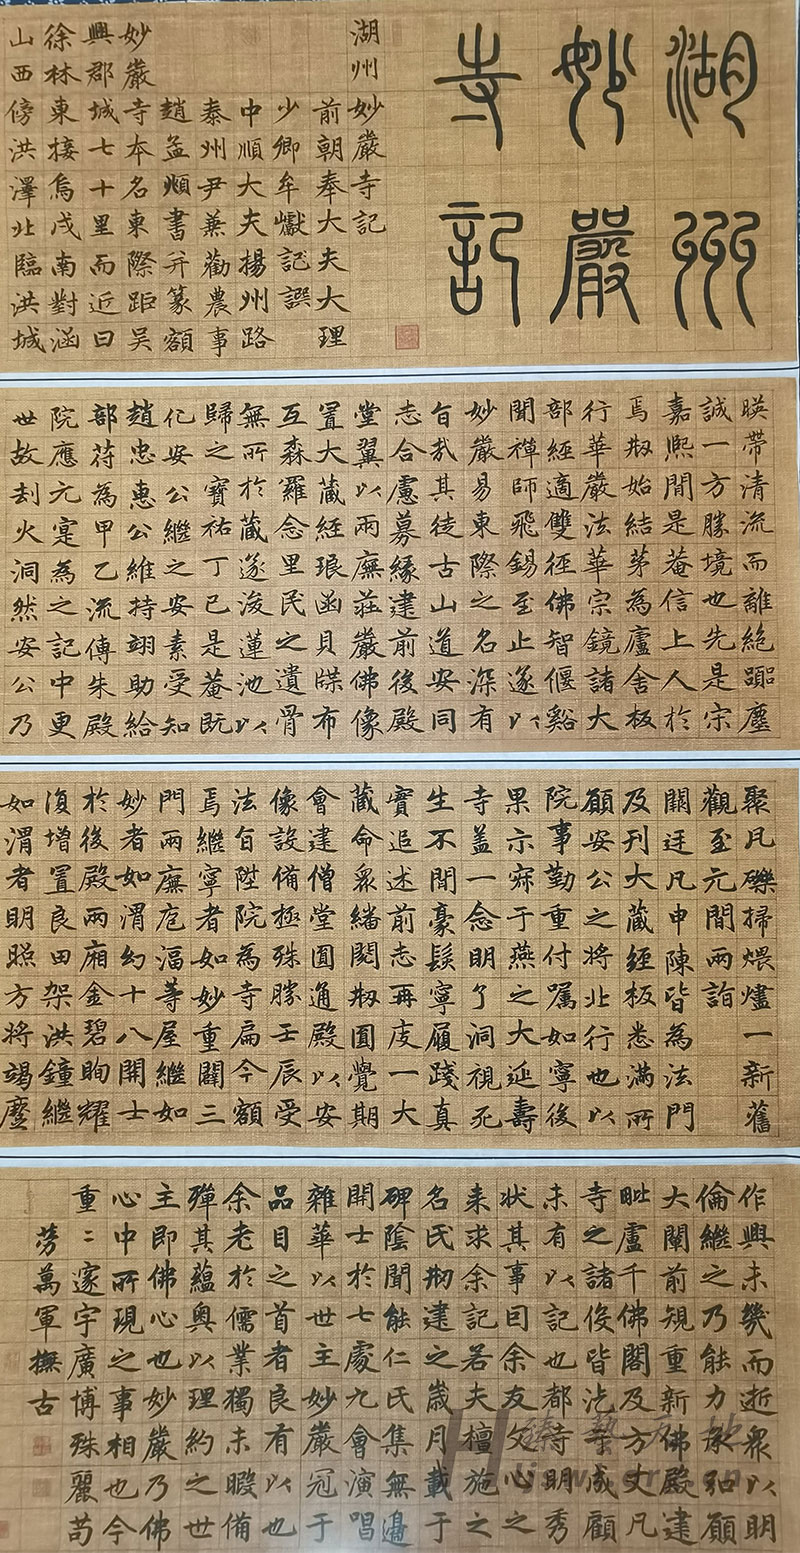 湖州
妙嚴
寺記
湖州妙嚴寺記
前朝奉大夫大理
少卿牟巘記譔
中順大夫揚州路
泰州尹兼勸農事
趙孟頫書并篆額
妙嚴寺本名東際距吳
興郡城七十里而近曰
徐林東接烏戍南對涵
山西傍洪澤北臨洪城
暎帶清流而離絶囂塵
誠一方勝境也先是宋
嘉熙間是菴信上人於
焉剏始結茅為廬舍板
行華嚴法華宗鏡諸大
部經適雙徑佛智偃谿
聞禪師飛錫至止遂以
妙嚴易東際之名深有
旨哉其徒古山道安同
志合慮募緣建前後殿
堂翼以兩廡莊嚴佛像
置大藏經琅函貝牒布
互森羅念里民之遺骨
無所於藏遂浚蓮池以
歸之寶祐丁巳是菴既
化安公繼之安素受知
趙忠惠公維持翊助給
部苻為甲乙流傳朱殿
院應元寔為之記中更
世故刦火洞然安公乃
聚凡礫掃煨燼一新舊
觀至元間兩詣
闕廷凡申陳皆為法門
及刊大藏經板悉滿所
願安公之將北行也以
院事勤重付囑如寧後
果示寂于燕之大延壽
寺盖一念明了洞視死
生不間豪髮寧履踐真
實追述前志再庋一大
藏命衆繙閱剏圓覺期
會建僧堂圓通殿以安
像設備極殊勝壬辰受
法旨陞院為寺扁今額
焉繼寧者如妙重闢三
門兩廡庖湢等屋繼如
妙者如渭約十八開士
於後殿兩廂金碧眴耀
復增置良田架洪鐘繼
如渭者明照方將竭蹷
作興未幾而逝衆以明
倫繼之乃能力承弘願
大闡前規重新佛殿建
毗盧千佛閣及方丈凡
寺之諸役皆汔于成顧
未有以記也都寺明秀
狀其事囙余友文心之
来求余記若夫檀施之
名氏剏建之歲月載于
碑陰聞能仁氏集無邊
開士於七處九會演唱
雜華以世主妙嚴冠于
品目之首者良有以也
余老於儒業獨未暇備
殫其蘊奥以理約之世
主即佛心也妙嚴乃佛
心中所現之事相也今
重〻邃宇廣博殊麗苟
萬軍撫古